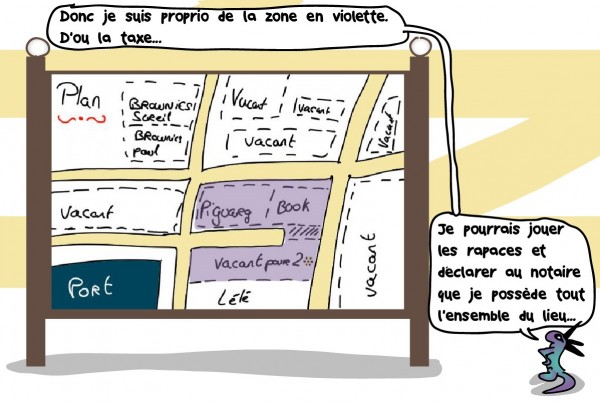 Donc je suis proprio de la zone en violette.
D'ou la taxe...
Plan
BROWNIES
Soreil
BROWNIES
paul
Vacant
Vacant
vacant
Vacant
Vacant
Piguareg
Book
vacant pour 2
vacant
PORT
Lété
Je pourrais jouer
les rapaces et
déclarer au notaire
que je possède tout
l'ensemble du lieu...